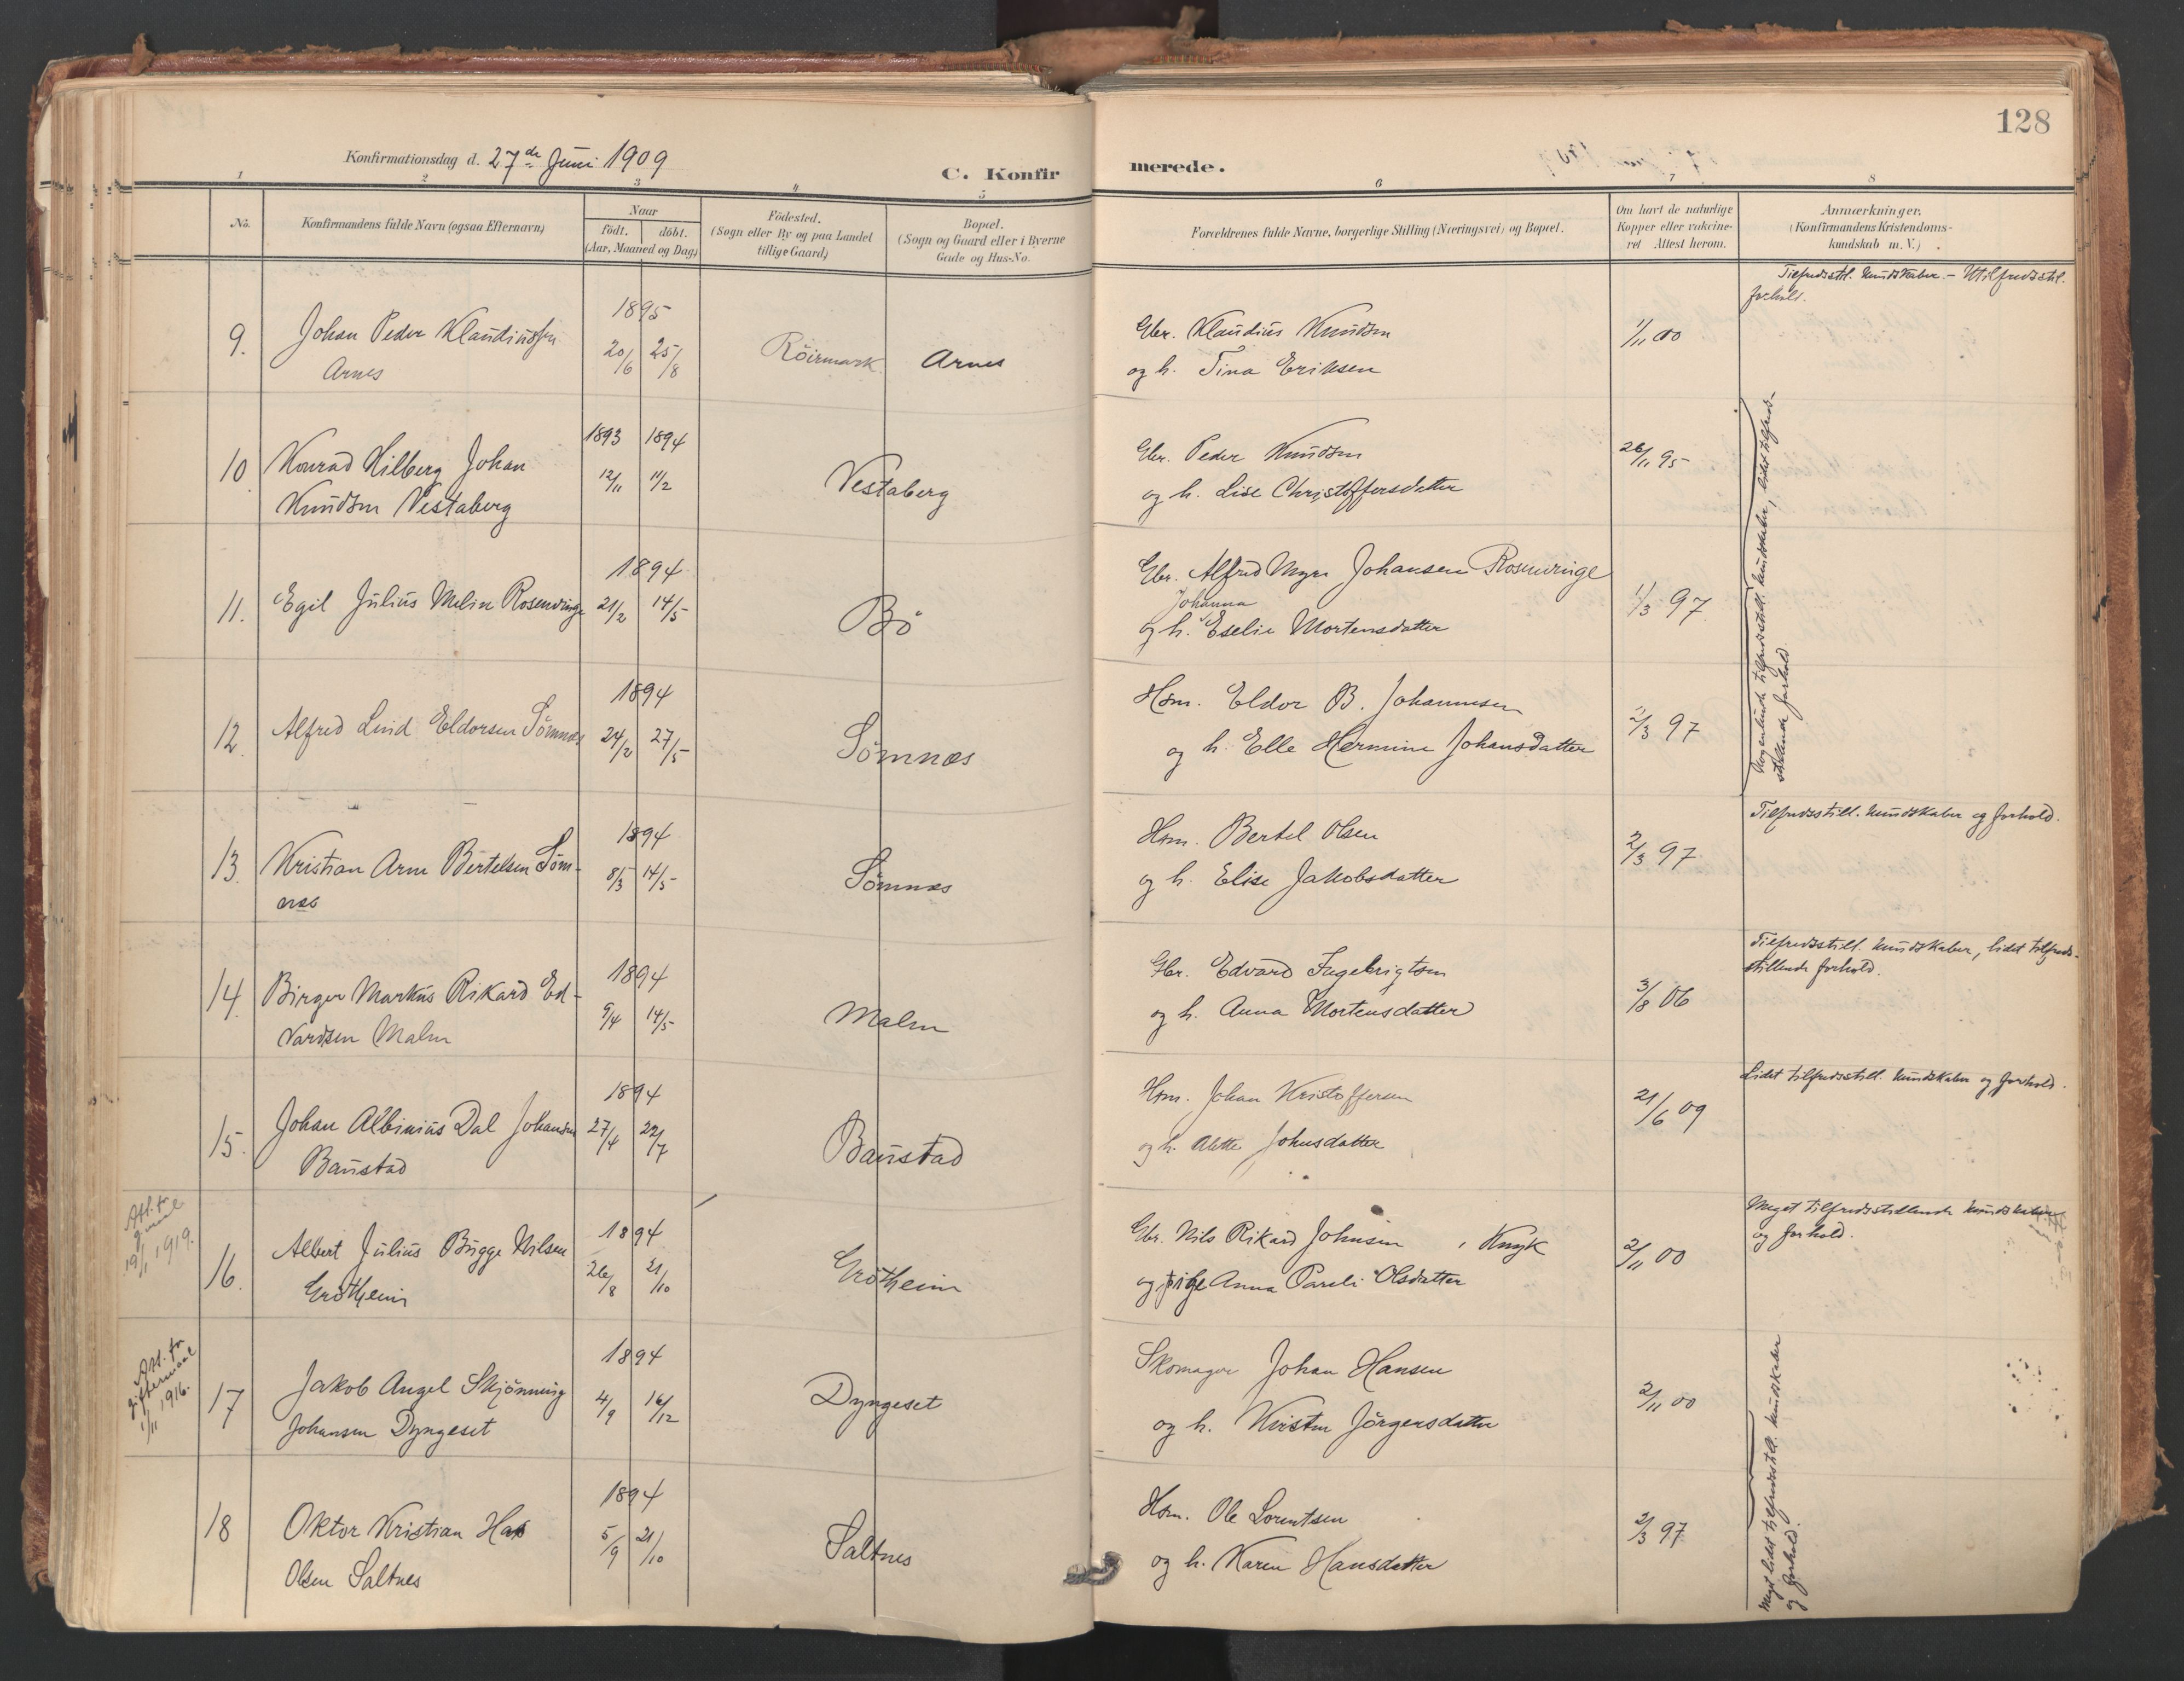 128
Konfirmationsdag d. 27de Juni 1909
C. Konfirmerede.
1 2 3 4 5 6 7 8
No.
Konfirmandens fulde Navn (ogsaa Efternavn)
Naar
födt. döbt.
(Aar, Maaned og Dag)
Födested.
(Sogn eller By og paa Landet
tillige Gaard)
Bopæl.
(Sogn og Gaard eller i Byerne
Gade og Hus-No.
Forældrenes fulde Navne, borgerlige Stilling (Næringsvei) og Bopæl.
Om havt de naturlige
Kopper eller vakcine-
ret Attest herom.
Anmærkninger.
(Konfirmandens Kristendoms-
kundskab m. V.)
9. Johan Peder Klaudiussen
Arnes
1895
20/6 25/8
Röirmark Arnes
Gbr. Klaudius Knudsen
og h. Tina Eriksen
1/11 00
Tilfredsstil. kundskaber. - Utilfredsstil.
forhold.
10 Konrad Hilberg Johan
Knudsen Vestaberg
1893 1894
12/11 11/2
Vestaberg
Gbr. Peder Knudsen
og h. Lise Christoffersdatter
26/11 95
11. Egil Julius Melin Rosenvinge
1894
21/2 14/5
Bö
Gbr. Alfred Myra Johansen Rosenvinge
Johanna
og h. Eselie Mortensdatter
1/3 97
12. Alfred Lind Eldorsen Sömnæs
1894
24/2 27/5
Sömnæs
Hsm. Eldor B. Johannesen
og h. Elle Hermine Johansdatter
2/3 97
Nogenlunde tilfredsstill. kundskaber, lidet tilfreds-
stillende forhold.
13. Kristian Arne Bertelsen Söm-
næs
1894
8/3 14/5
Sömnæs
Hsm. Bertel Olsen
og h. Elise Jakobsdatter
2/3 97
Tilfredsstill. kundskaber og forhold.
14. Birger Markus Rikard Ed-
vardsen Malm
1894
9/4 14/5
Malm
Gbr. Edvard Ingebrigtsen
og h. Anna Mortensdatter
3/8 06
Tilfredsstill. kundskaber, lidet tilfreds-
stillende forhold.
15. Johan Albinius Dal Johansen
Baustad
1894
27/4 22/7
Baustad
Hsm. Johan Kristoffersen
og h. Alette Johnsdatter
21/6 09
Lidet tilfredsstill. kundskaber og forhold.
Att. for
19/1 1919.
16. Albert Julius Bugge Nilsen
Grötheim
1894
26/8 21/10
Grötheim
Gbr. Nils Rikard Johnsen, Knyk
og pige Anna Pareli Olsdatter
2/11 00
Meget tilfredsstillende kundskaber
og forhold.
Att. for
giftermaal
1/11 1916.
17 Jakob Angel Skjönning
Johansen Dyngeset
1894
4/9 16/12
Dyngeset
Skomager Johan Hansen
og h. Kirsten Jörgensdatter
2/11 00
18 Oktor Kristian Has
Olsen Saltnes
1894
5/9 21/10
Saltnes
Hsm. Ole Lorentsen
og h. Karen Hansdatter
2/3 97
Meget lidet tilfredsstill. kundskaber
og forhold.